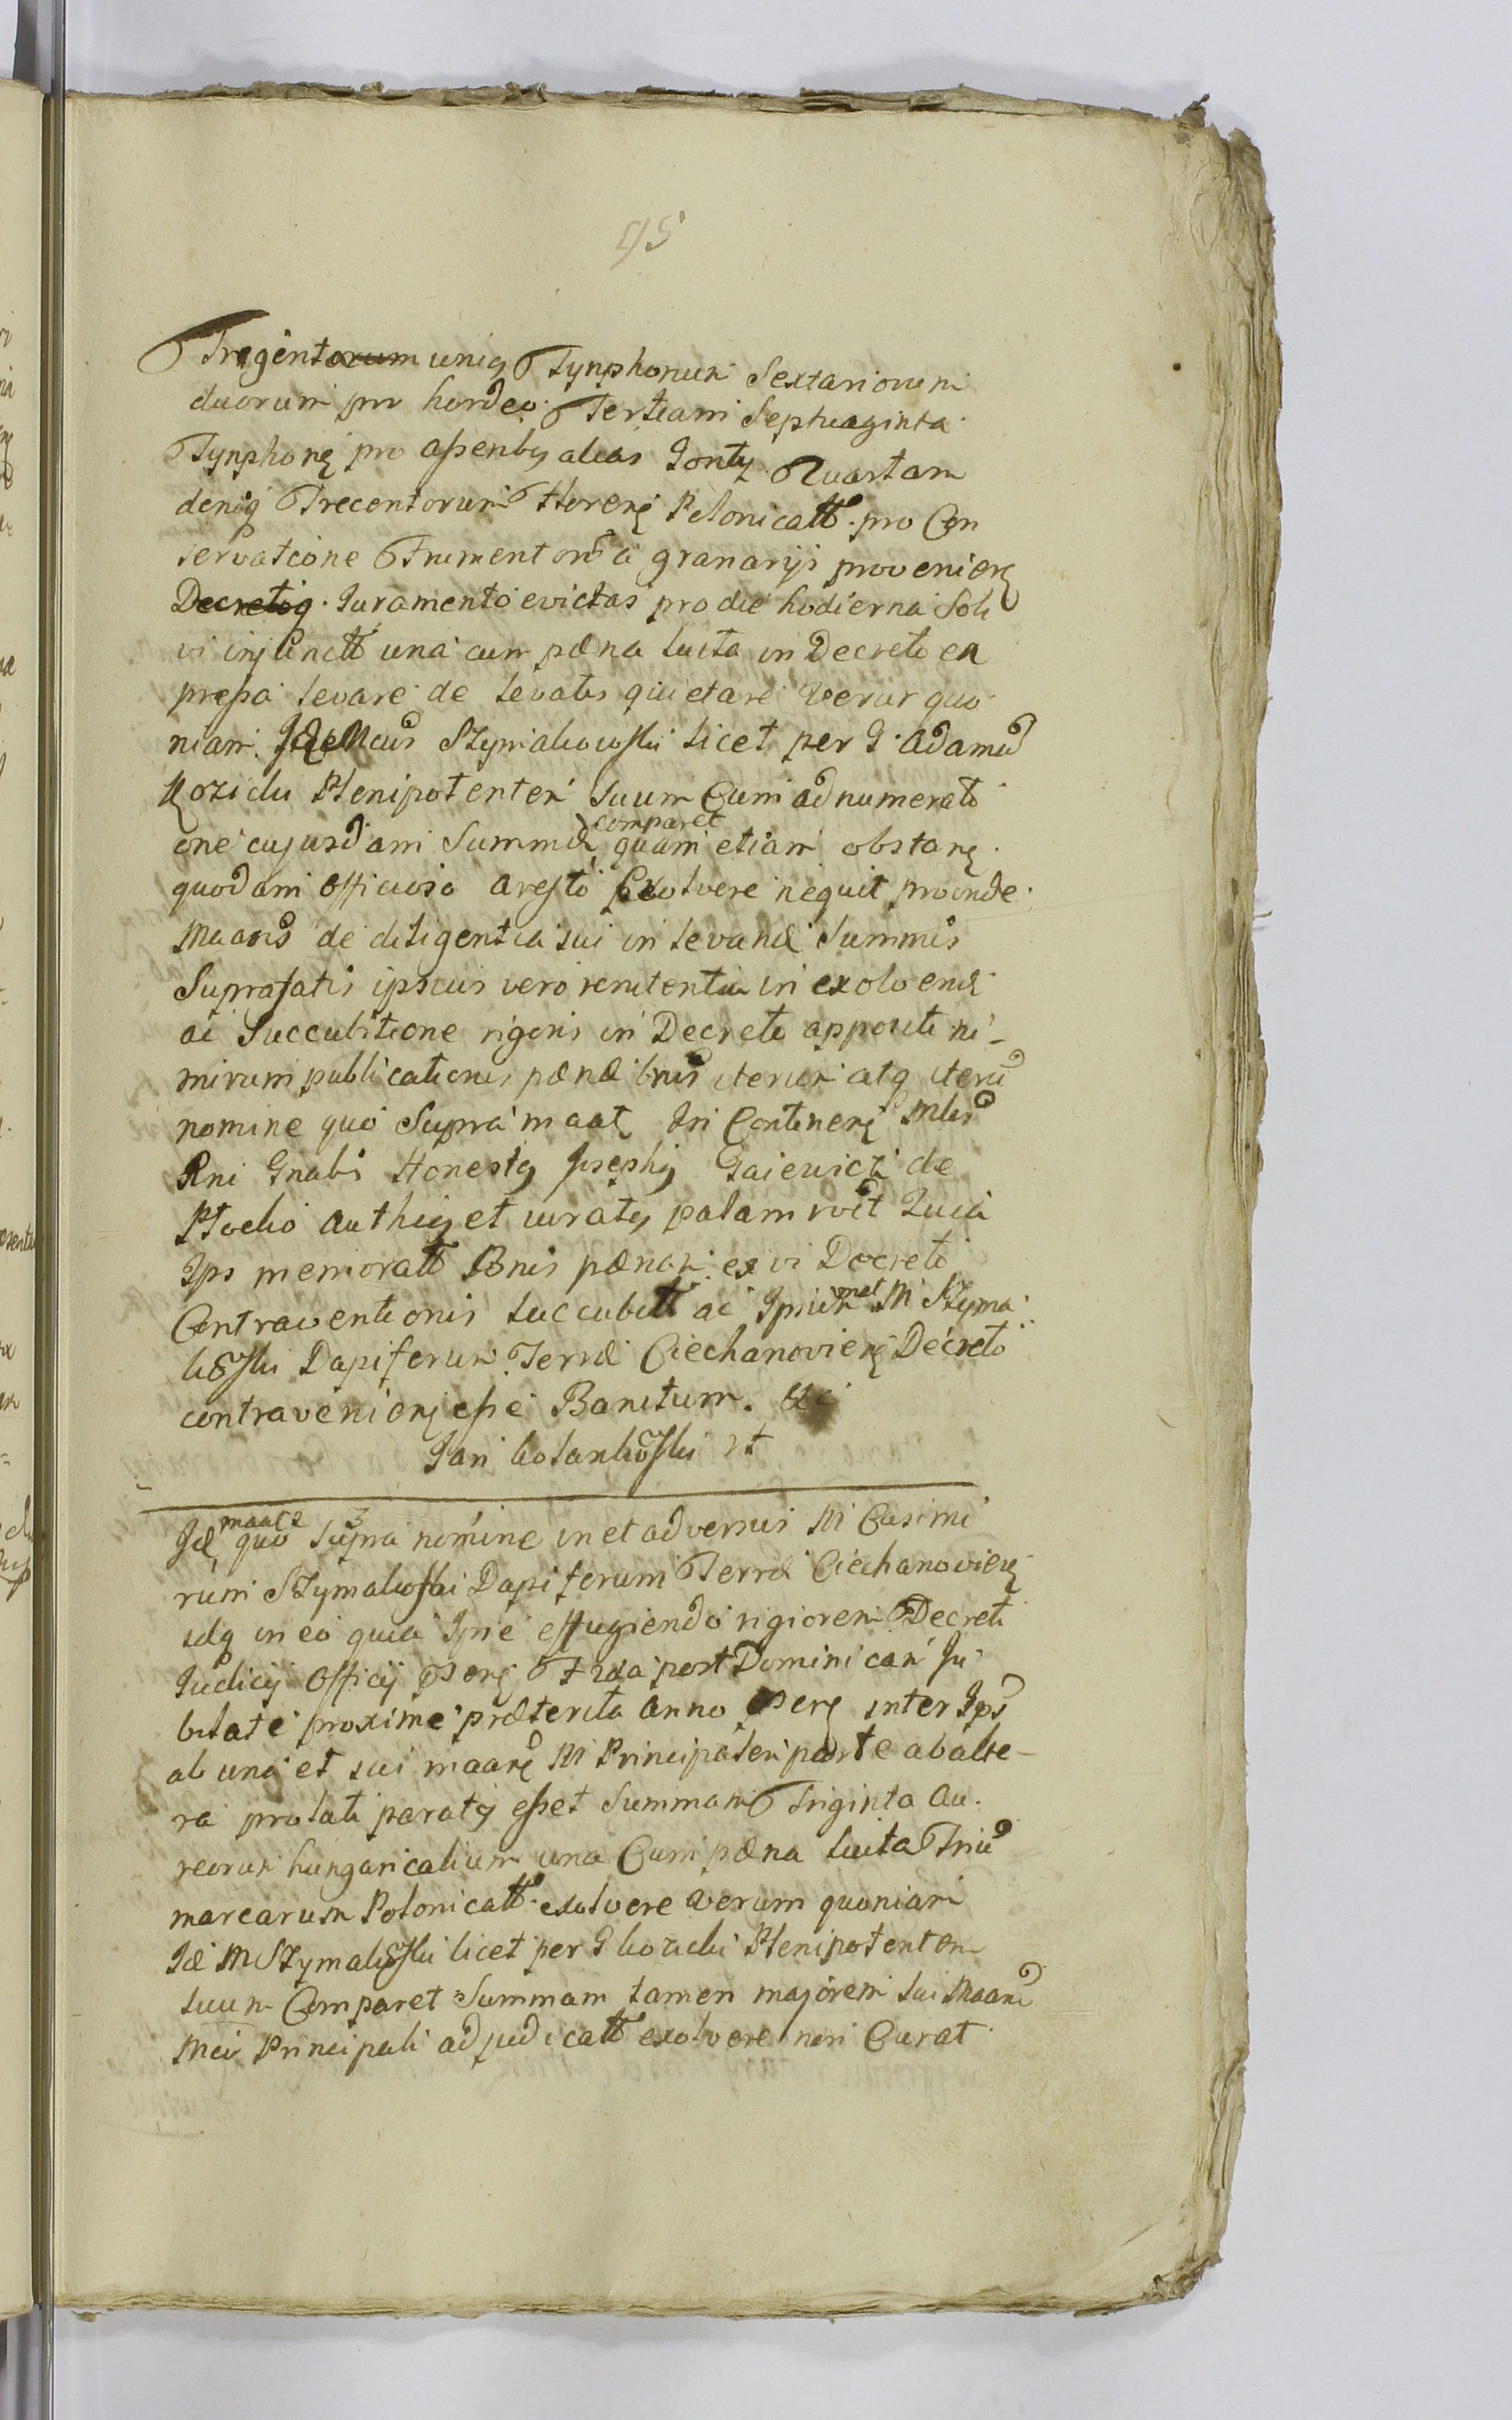 95
Tregentorum uniq Tynphonum Sextariorum
duorum pro hordeo Tertiam Septuaginta
Tynphonę pro assentbg alias Gonty Quartam
deniq Trecentorum florenę Polonicalł pro Con
servatione Frumentorũ a granarijs provenienę
Decretoq Juramento evictas pro die hodierna Sol
vi injunctł una cum pæna luita in Decreto ex
pressa levare de levatis quietare verum quo
niam Idem Mcus Szymakowski licet per G Adamũ
Kozicki Plenipotentem suum Cum adnumerati
one cujusdam Summæ comparet quam etiam obstanę
quodam officioso aresto Exolvere nequit proinde
Maans de diligentia sui in levandæ Summis
Suprafatis ipsius vero renitentia in exolvendæ
ac Succubitione rigoris in Decreto appositi ni-
mirum publicationis pænæ bnis iterum atq iterũ
nomine quo Supra maat In Continenę Mlis
Rni Gnalis Honestg Josephg Gaiewicz de
Płocko Authicg et juratg palam rőit Quia
Ips memoratł Bnis pænam ex vi Decreti
Contraventionis succubitł ac Ipsummet M Szyma
kőski Dapiferum Terræ Ciechanovienę Decreto
contravenienę esse Banitum. &c
Jan Kolankőski rt
Id maat quo Supra nomine in et adversus M Casimi
rum Szymakoski Dapiferum Terræ Ciechanovienę
idq in eo quia Ipse effugiendo rigiorem Decreti
Judicij Officij psenę Fria post Dominicam Ju
bilate proxime præterita Anno psenę inter Ips
ab una et sui maanę M Principalem parte ab alte-
ra prolati paratg esset Summam Triginta Au
reorum hungaricalium una Cum pæna luita Triũ
marcarum Polonicalł exolvere verum quoniam
Id M Szymakőski licet per G Kozicki Plenipotentem
suum Comparet Summam tamen majorem sui Maanę
Mci Principali adjudicatł exolvere non Curat